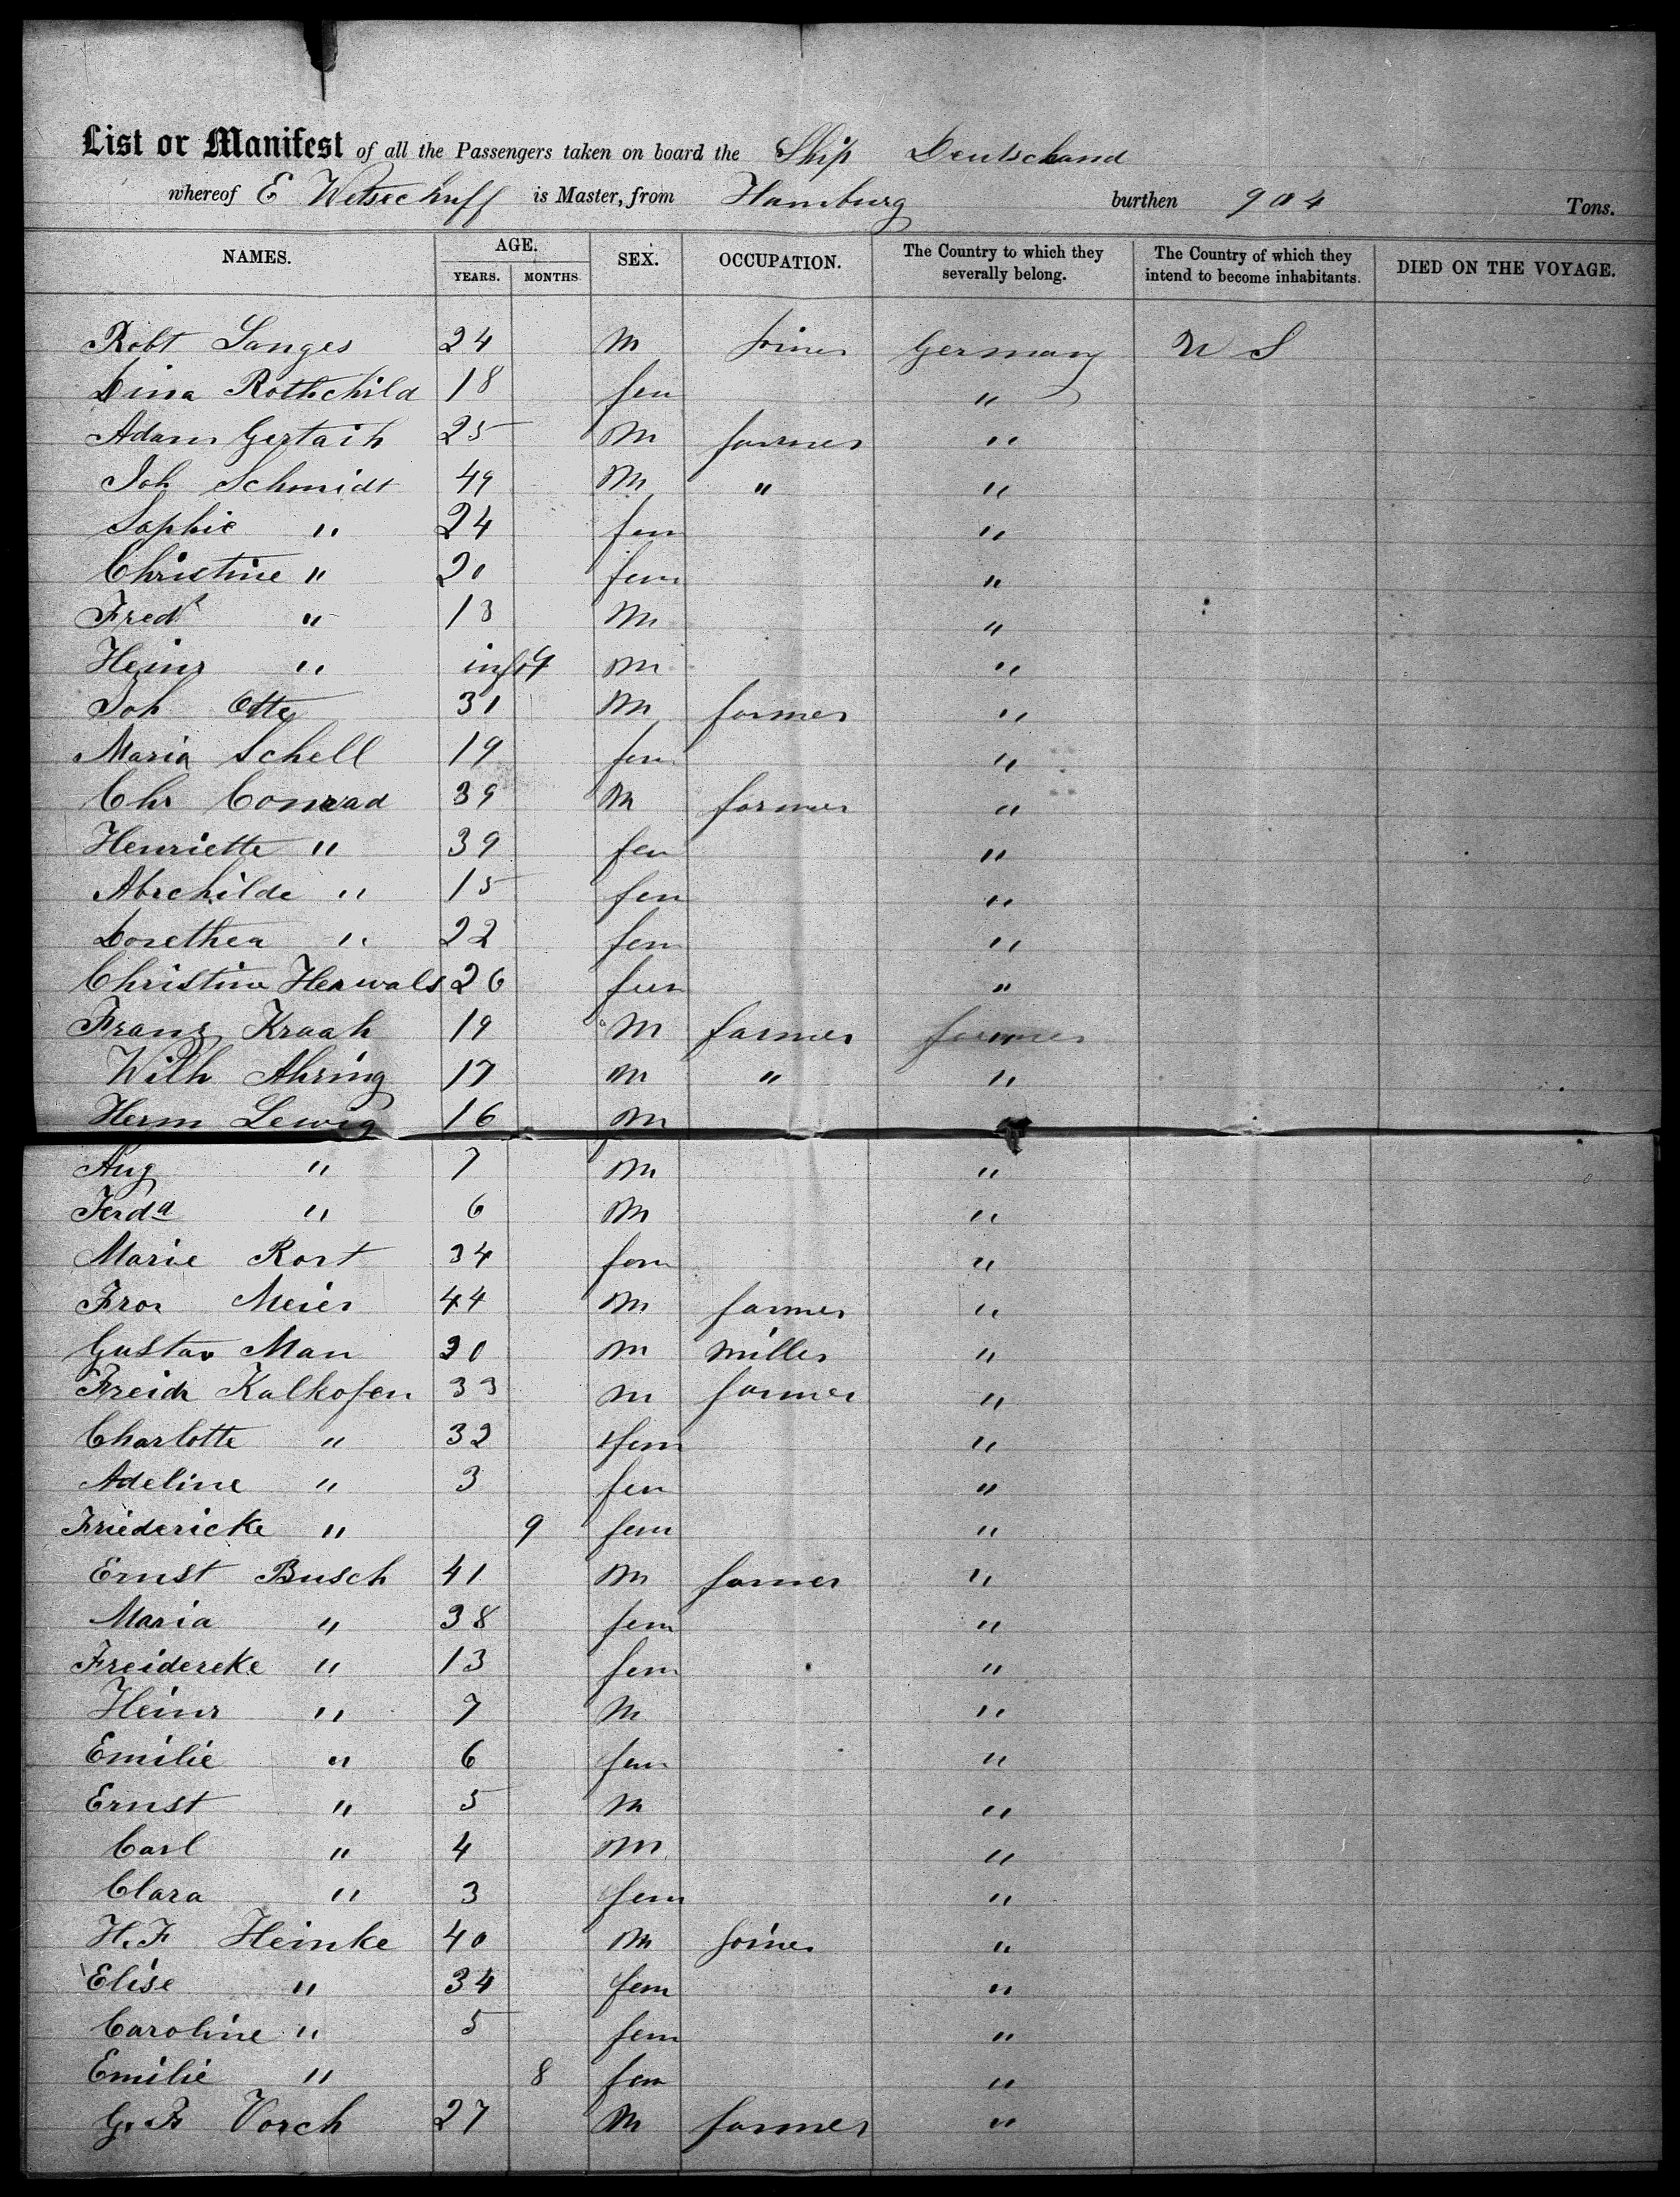 List or Manifest of all the Passengers taken on board the Ship Deutschand
whereof E Wetsechuff is Master, from Hamburg burthen 904 Tons.
NAMES. AGE. YEARS. MONTHS. SEX. OCCUPATION. The Country to which they severally belong. The Country of which they intend to become inhabitants. DIED ON THE VOYAGE.
Robt Langes 24 m Joiner Germany U S
Dina Rothchild 18 fem "
Adam Gertaih 25 m farmer "
Joh Schmidt 49 m " "
Sophie " 24 fem "
Christine " 20 fem "
Fredk " 13 m "
Heinr " inft 9 m "
Joh Otte 31 m farmer "
Maria Schell 19 fem "
Chr Conrad 39 m farmer "
Henriette " 39 fem "
Abrchilde " 15 fem "
Dorethea " 22 fem "
Christine Herwals 26 fem "
Franz Kraah 19 m farmer "
Wilh Ahring 17 m " "
Herm Lewig 16 m
Aug " 7 m "
Ferdd " 6 m "
Marie Rort 34 fem "
Meier 44 m farmer "
Gustav Man 20 m miller "
Freidr Kalkofen 33 m farmer "
Charlotte " 32 fem "
Adeline " 3 fem "
Friedericke " 9 fem "
Ernst Busch 41 m farmer "
Maria " 38 fem "
Freidereke " 13 fem "
Heinr " 7 m "
Emilie " 6 fem "
Ernst " 5 m "
Carl " 4 m "
Clara " 3 fem "
H. F Heinke 40 m Joiner "
Elise " 34 fem "
Caroline " 5 fem "
Emilie " 8 fem "
G. Fr Vorch 27 m farmer "